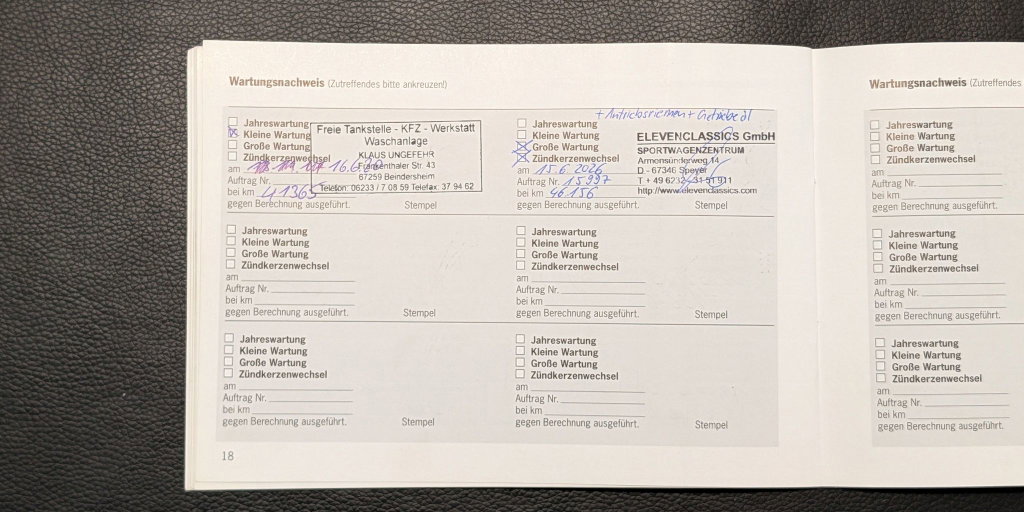 Wartungsnachweis (Zutreffendes bitte ankreuzen!)
Jahreswartung
Kleine Wartung
Große Wartung
Zündkerzenwechsel
am 16.6.
Auftrag Nr.
bei km 41365
gegen Berechnung ausgeführt.
Freie Tankstelle - KFZ - Werkstatt
Waschanlage
KLAUS UNGEFEHR
Frankenthaler Str. 43
67259 Beindersheim
Telefon: 06233 / 7 08 59 Telefax 37 94 62
+ Antriebsriemen + Getriebeöl
Jahreswartung
Kleine Wartung
Große Wartung
Zündkerzenwechsel
am 15.6.2026
Auftrag Nr. 15997
bei km 46156
gegen Berechnung ausgeführt.
ELEVENCLASSICS GmbH
SPORTWAGENZENTRUM
Armensünderweg 14
D - 67346 Speyer
T + 49 6232 - 31 51 911
http://www.elevenclassics.com
Stempel
Jahreswartung
Kleine Wartung
Große Wartung
Zündkerzenwechsel
am
Auftrag Nr.
bei km
gegen Berechnung ausgeführt. Stempel
Jahreswartung
Kleine Wartung
Große Wartung
Zündkerzenwechsel
am
Auftrag Nr.
bei km
gegen Berechnung ausgeführt. Stempel
Jahreswartung
Kleine Wartung
Große Wartung
Zündkerzenwechsel
am
Auftrag Nr.
bei km
gegen Berechnung ausgeführt. Stempel
Jahreswartung
Kleine Wartung
Große Wartung
Zündkerzenwechsel
am
Auftrag Nr.
bei km
gegen Berechnung ausgeführt. Stempel
18
Wartungsnachweis (Zutreffendes
Jahreswartung
Kleine Wartung
Große Wartung
Zündkerzenwechsel
am
Auftrag Nr.
bei km
gegen Berechnung ausgeführt.
Jahreswartung
Kleine Wartung
Große Wartung
Zündkerzenwechsel
am
Auftrag Nr.
bei km
gegen Berechnung ausgeführt.
Jahreswartung
Kleine Wartung
Große Wartung
Zündkerzenwechsel
am
Auftrag Nr.
bei km
gegen Berechnung ausgeführt.